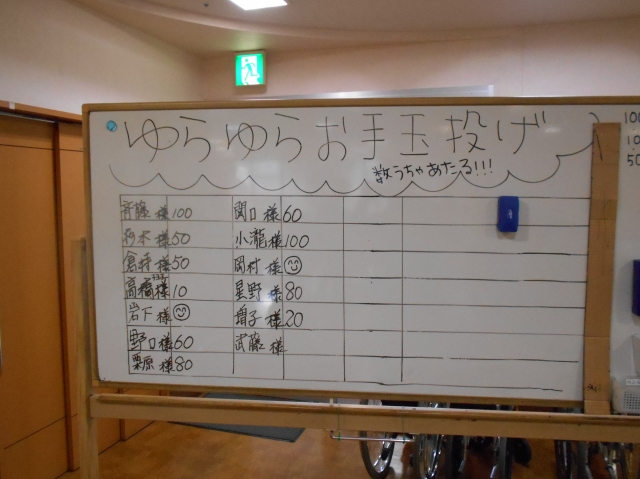 ゆらゆらお手玉投げ
数うちゃあたる!!!
斉藤 様 100
杉本 様 50
倉持 様 50
高橋 様 10
岩下 様
野口 様 60
栗原 様 80
関口 様 60
小瀧 様 100
岡村 様
星野 様 80
増子 様 20
武藤 様